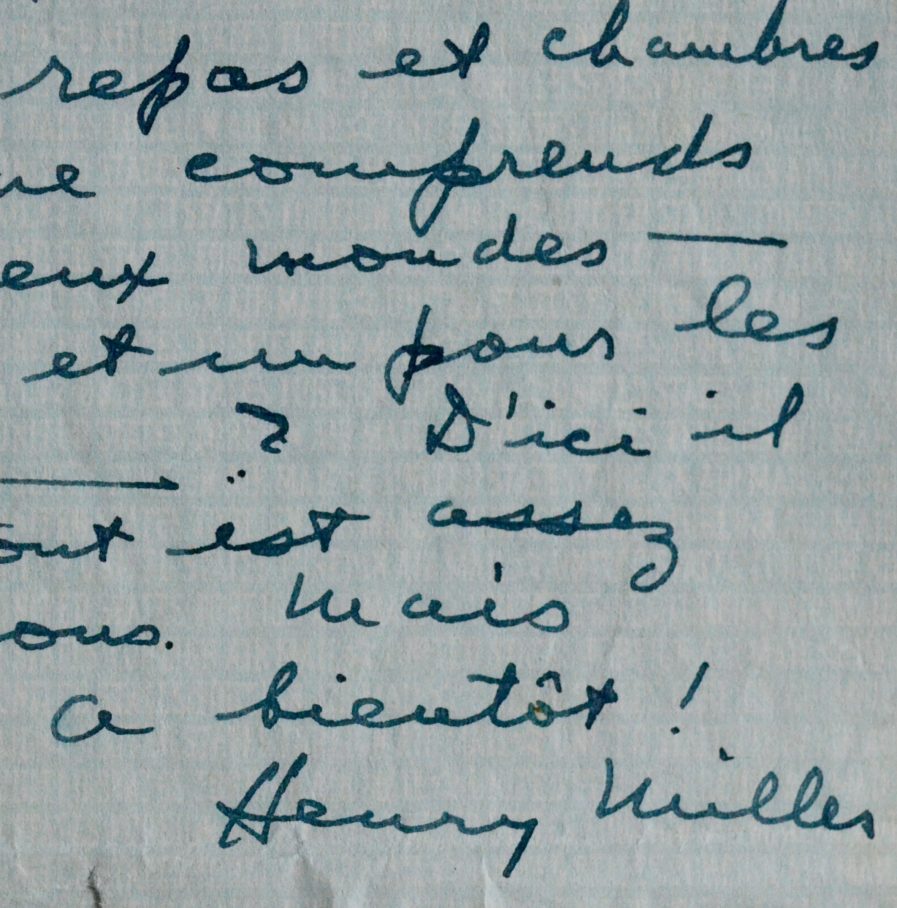 repas et chambres
ne comprends
eux mondes —
et un pour les
? D'ici il
out est assez
ous. Mais
a bientôt !
Henry Miller